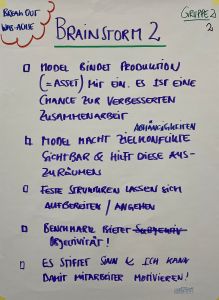 BREAK OUT
WAS-ACHE
GRUPPE 2
2
BRAINSTORM 2
MODEL BINDET PRODUKTION
(= ASSET) MIT EIN. ES IST EINE
CHANCE ZUR VERBESSERTEN
ZUSAMMENARBEIT
ABHÄNGIGKEITEN
MODEL MACHT ZIELKONFLIKTE
SICHTBAR & HILFT DIESE AUS-
ZURÄUMEN
FESTE STRUKTUREN LASSEN SICH
AUFBEREITEN / ANGEHEN
BENCHMARK BIETET SUBJEKTIV
OBJEKTIVITÄT!
ES STIFTET SINN & ICH KANN
DAMIT MITARBEITER MOTIVIEREN!